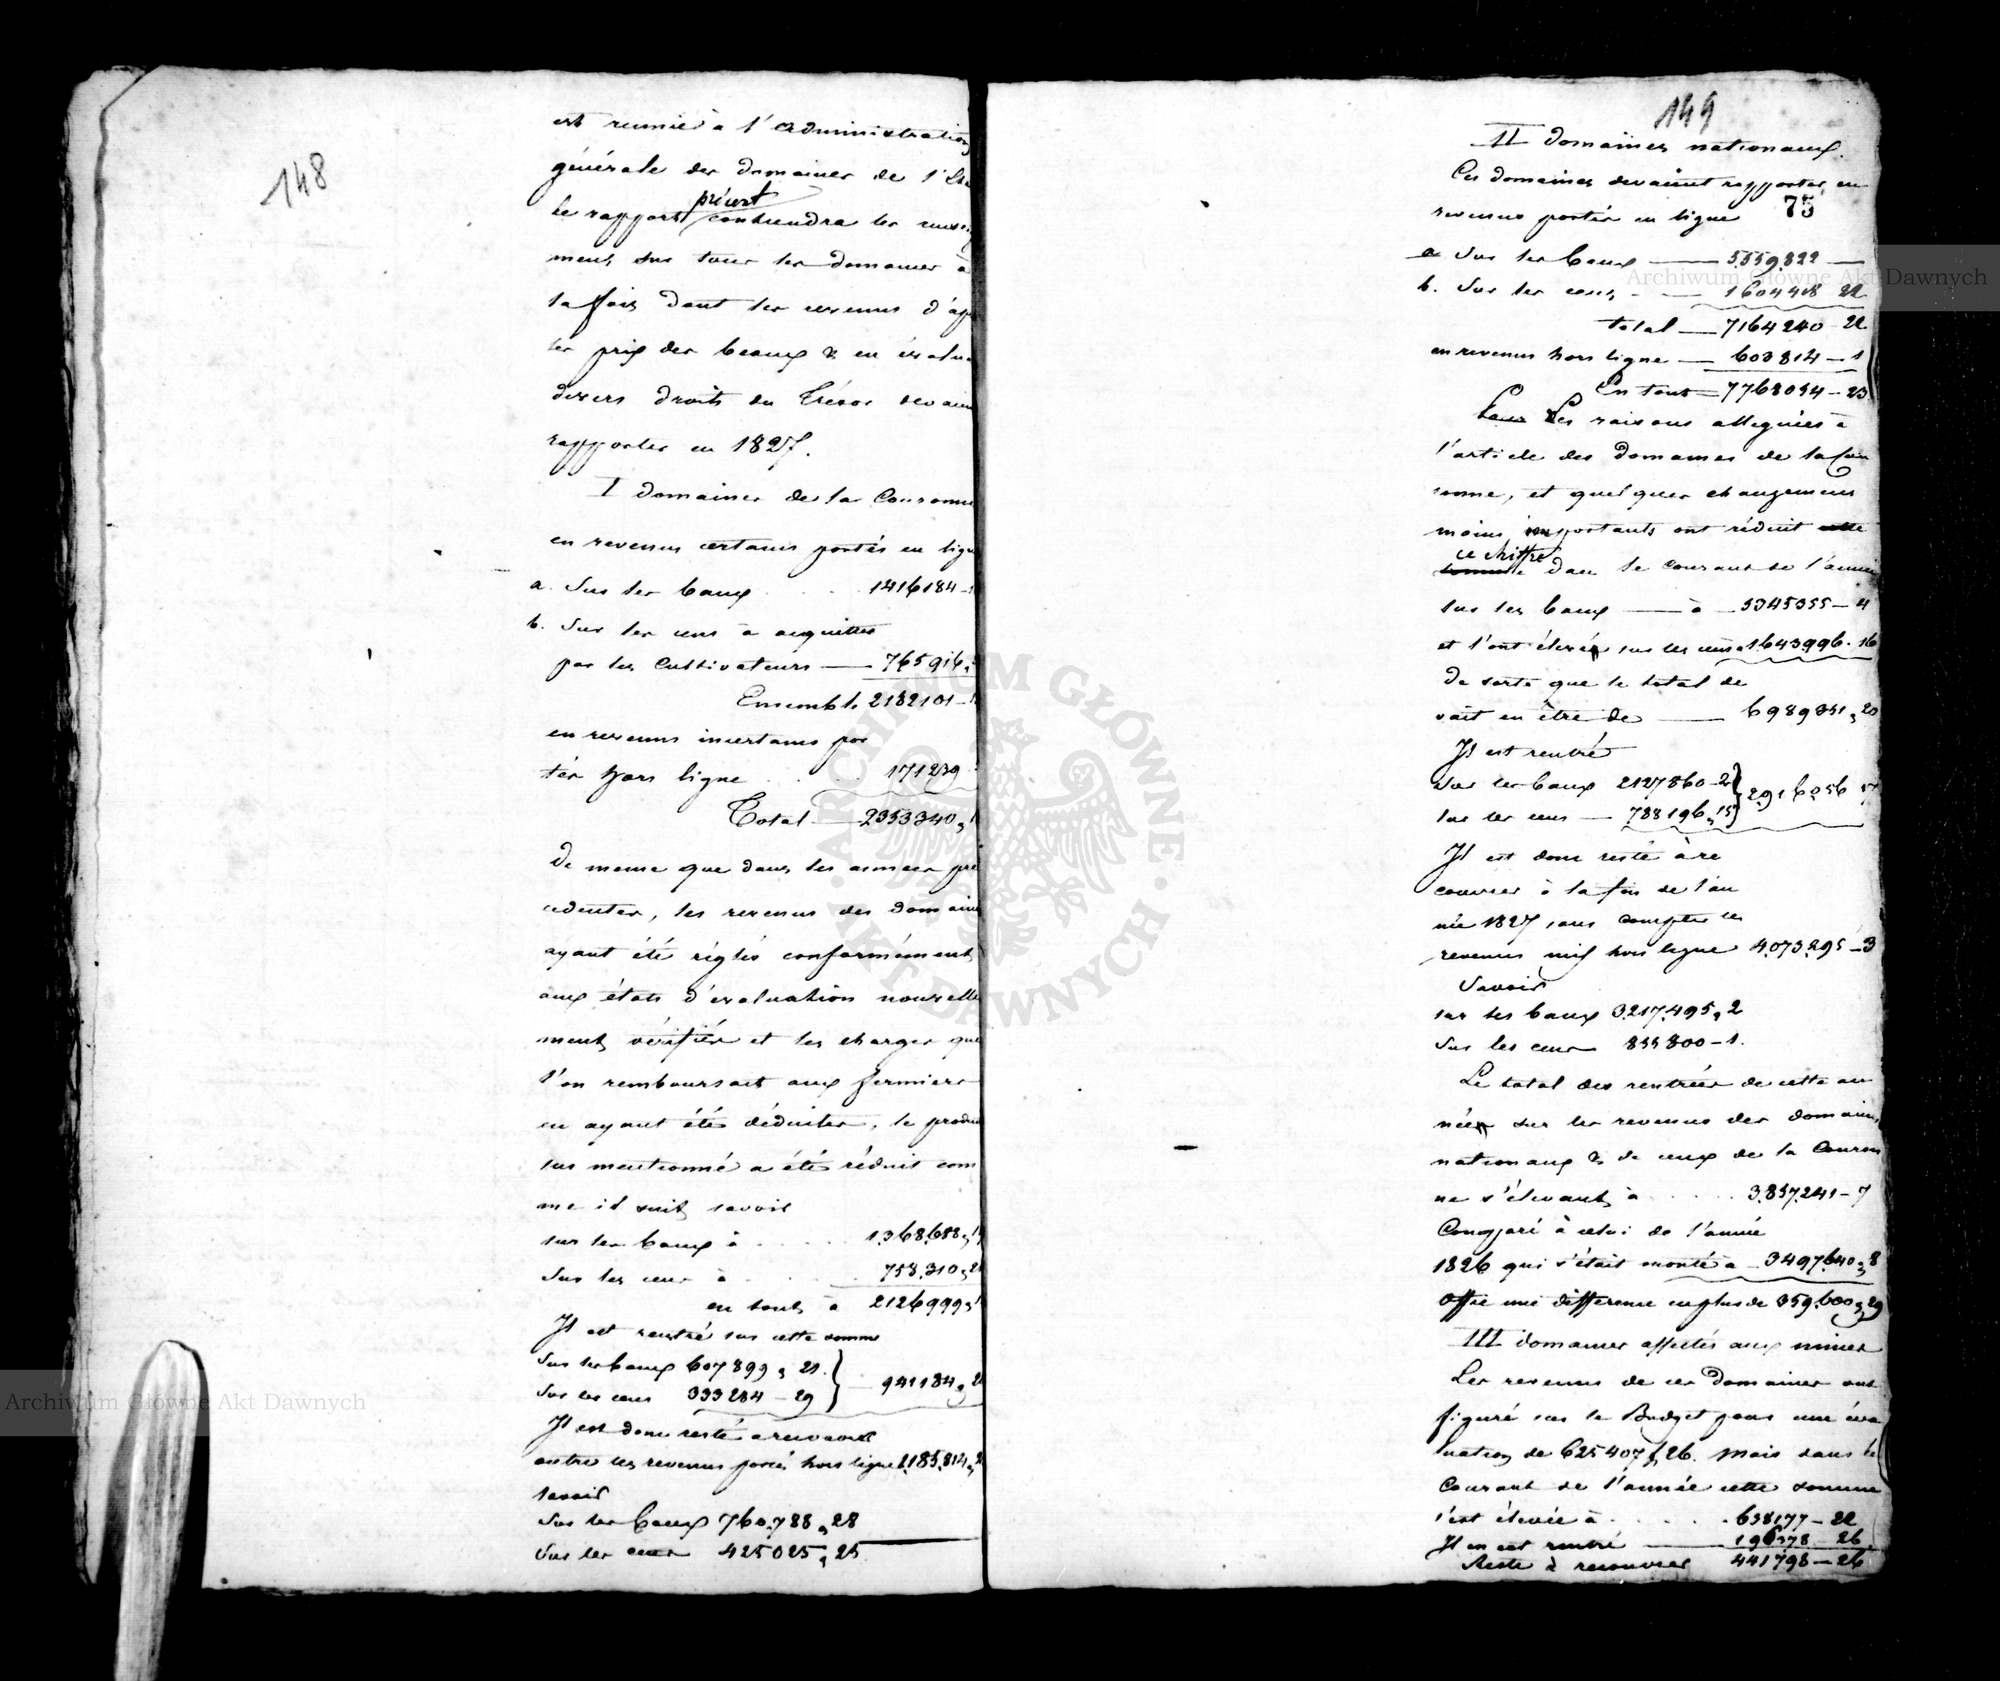 148
est reunie à l'administration
générale des domaines de l'Eta
le rapport présent contiendra les rensei
ment sur tous les domaines à
la fois dont les revenus d'ap
les prix des beaux & en évalua
divers droits du Trésor devaien
rapporter en 1827.
I domaines de la Couronne
en revenus certains portés en ligne
a. Sur les baux . . . 1416184 -
b. Sur les cens à acquitter
par les Cultivateurs — 765916,
Ensemble 2182101 -
en revenus incertains por
tés hors ligne . . . 171239
Total — 2353340,
De meme que dans les années pré
cedentes, les revenus des domaines
ayant été réglés conformément
aux états d'évaluation nouvelle
ment vérifiés et les charges que
l'on remboursait aux fermiers
en ayant été déduites, le produi
sus mentionné a été réduit com
me il suit savoir
sur les baux à . . . . 1,368,688,
Sur les cens à . . . 758,310,2
en tout à 2126999,
Il est rentré sur cette somme
Sur les baux 607899, 21.
Sur les cens 333284 - 29 } — 941184, 2
Il est donc resté à recouvrer
outre les revenus portés hors ligne 1,185,814,
savoir
Sur les baux 760,788, 28
Sur les cens 425025, 25
149
II domaines nationaux.
Ces domaines devaient rapporter, en
revenus portés en ligne 75
a Sur les baux — 5,559,822 —
b. Sur les cens . — 1604418 22
total — 7164240 - 22
en revenus hors ligne — 603814 - 1
En tout = 7768054 - 23
Les raisons alleguées à
l'article des domaines de la Cou
ronne, et quelques changemens
moins importants ont réduit cette
ce chiffre
somme dans le courant de l'année
sur les baux — à — 5345355 - 4
et l'ont élevé sur les cens à 1643996. 16
De sorte que le total de
vait en être de — 6989351, 20
Il est rentré
Sur les baux 2127860 - 2
sur les cens — 788196, 15 } 2,916,056 17
Il est donc resté à re
couvrer à la fin de l'an
née 1827 sans compter les
revenus mis hors ligne 4,073,295 - 3
Savoir
sur les baux 3,217,495, 2
Sur les cens 855800 - 1.
Le total des rentrées de cette an
née sur les revenus des domaines
nationaux & de ceux de la Couron
ne s'élevant à . . . . 3,857,241 - 7
Comparé à celui de l'année
1826 qui s'était monté à 3497,640, 8
Offre une différence en plus de 359,600, 29
III domaines affectés aux mines
Les revenus de ces Domaines ont
figuré sur le Budget pour une éva
luation de 625407 f, 26. mais dans le
Courant de l'année cette somme
s'est élevée à . . . . . 638177 - 22
Il en est rentré — 196378 - 26
Reste à recouvrer 441798 - 26
Archiwum Główne Akt Dawnych
Archiwum Główne Akt Dawnych
ARCHIWUM GŁÓWNE · AKT DAWNYCH ·